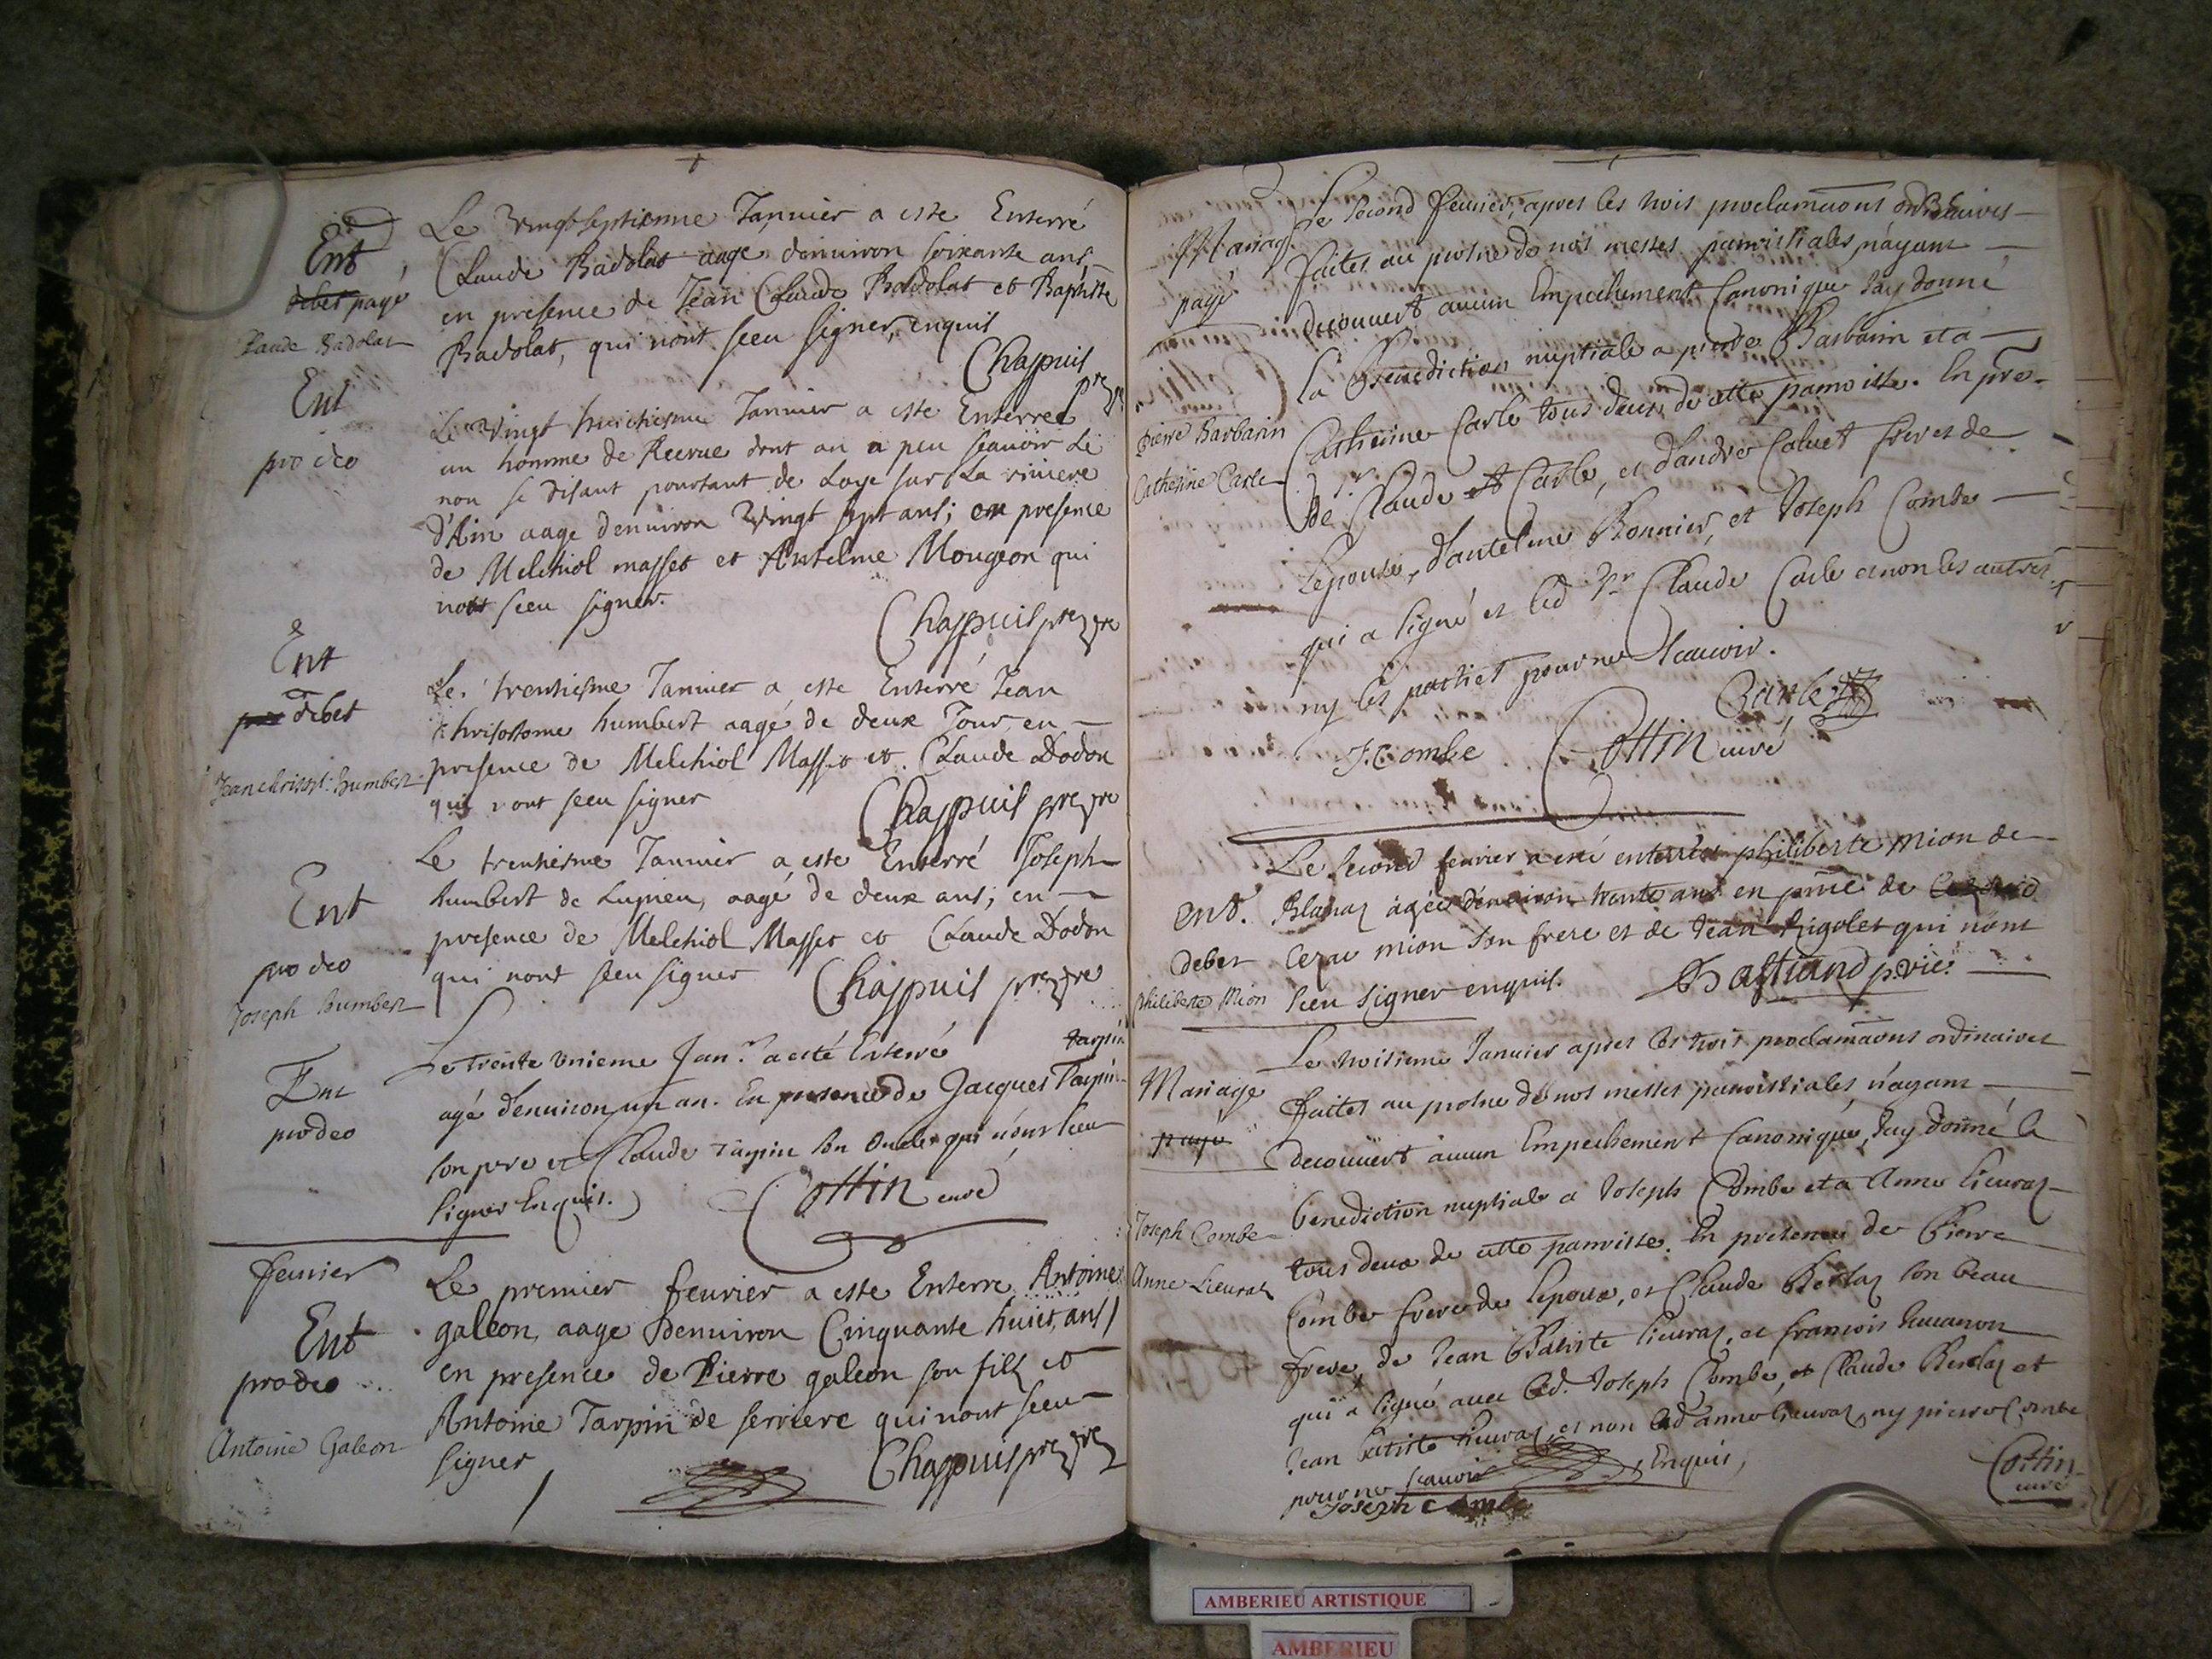 Ent
debet payé
Claude Badolat
Le Vingt septiesme Januier a este Enterré
Claude Badolat aage denuiron soixante ans
en presence de Jean Claude Badolat et Baptiste
Badolat, qui nont sceu signer, enquis
Chappuis
Ent
pro deo
Le Vingt huictiesme Januier a este Enterré
un homme de Recrue dont on a peu sçauoir le
non se disant pourtant de Loye sur La riuiere
d'Ain aage denuiron Vingt sept ans; en presence
de Melchiol masset et Antelme Mougeon qui
nont sceu signer.
Chappuis
Ent
debet
Jean chrisost: humbert
Le trentiesme Januier a este Enterré Jean
Chrisostome humbert aagé de deux Jour, en
presence de Melchiol Masset et Claude Dodon
qui nont sceu signer
Chappuis
Ent
pro deo
Joseph humbert
Le trentiesme Januier a este Enterré Joseph
humbert de Lupieu, aagé de deux ans; en
presence de Melchiol Masset et Claude Dodon
qui nont sceu signer Chappuis
Ent
pro deo
Le trente vnieme Jan.r a esté Enterré tarpin
agé d'enuiron un an. En presence de Jacques Tarpin
son pere et Claude Tarpin son Oncle qui n'ont sceu
signer Enquis. Cottin curé
feurier
Ent
pro deo
Antoine Galeon
Le premier feurier a este Enterre Antoine
galeon, aage denuiron Cinquante huict ans
en presence de Pierre galeon son filz et
Antoine Tarpin de serriere qui nont sceu
signer
Chappuis
Mariag.
payé
Pierre Barbarin
Catherine Carle
Le second feurier, apres les trois proclamaons ordinaires
faites au prosne de nos messes parroissiales n'ayant
decouuert aucun Empechement Canonique Jay donné
la Benediction nuptiale a pierre Barbarin et a
Catherine Carle tous deux de cette parroisse. En pre-
de Claude Carle, et d'andre Caluet freres de
l'epouse, d'antelme Bonnier, et Joseph Combe
qui a signé et led Sr Claude Carle et non les autres
ny les parties pour ne scauoir.
J. Combe Cottin curé
Ent.
debet
philiberte Mion
Le second feurier a esté enterrée philiberte Mion de
Blanaz agée d'enuiron trente ans en pnce de
Cezar mion son frere et de Jean Rigolet qui n'ont
sceu signer enquis. Bastiand p. vic.
Mariage
payé
Joseph Combe
Anne Lieuraz
Le troisieme Januier apres les trois proclamaons ordinaires
faites au prosne de nos messes parroissiales, n'ayant
decouuert aucun Empechement Canonique, Jay donné la
benediction nuptiale a Joseph Combe et a Anne Lieuraz
tous deux de cette parroisse. En presence de Pierre
Combe frere de l'epoux, et Claude Berlaz son beau
frere, de Jean Batiste lieuraz, et francois
qui a signé auec led. Joseph Combe, et Claude Berlaz et
Jean batiste lieuraz, et non lad anne lieuraz, ny pierre Combe
pour ne scauoir Enquis,
Cottin
curé
Joseph Combe
AMBERIEU ARTISTIQUE
AMBERIEU